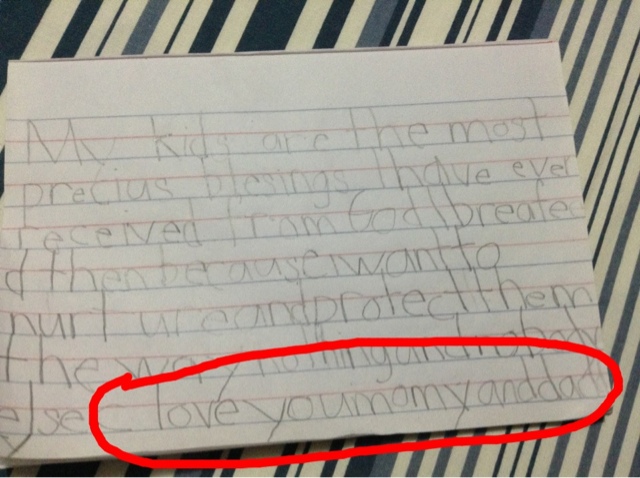 My kids are the most
precius blesings Ihave ever
received from God Ibreatee
d then becauseIwantto
nurt ureandprotectthem
the way nothingandnobody
else c loveyoumomyanddad